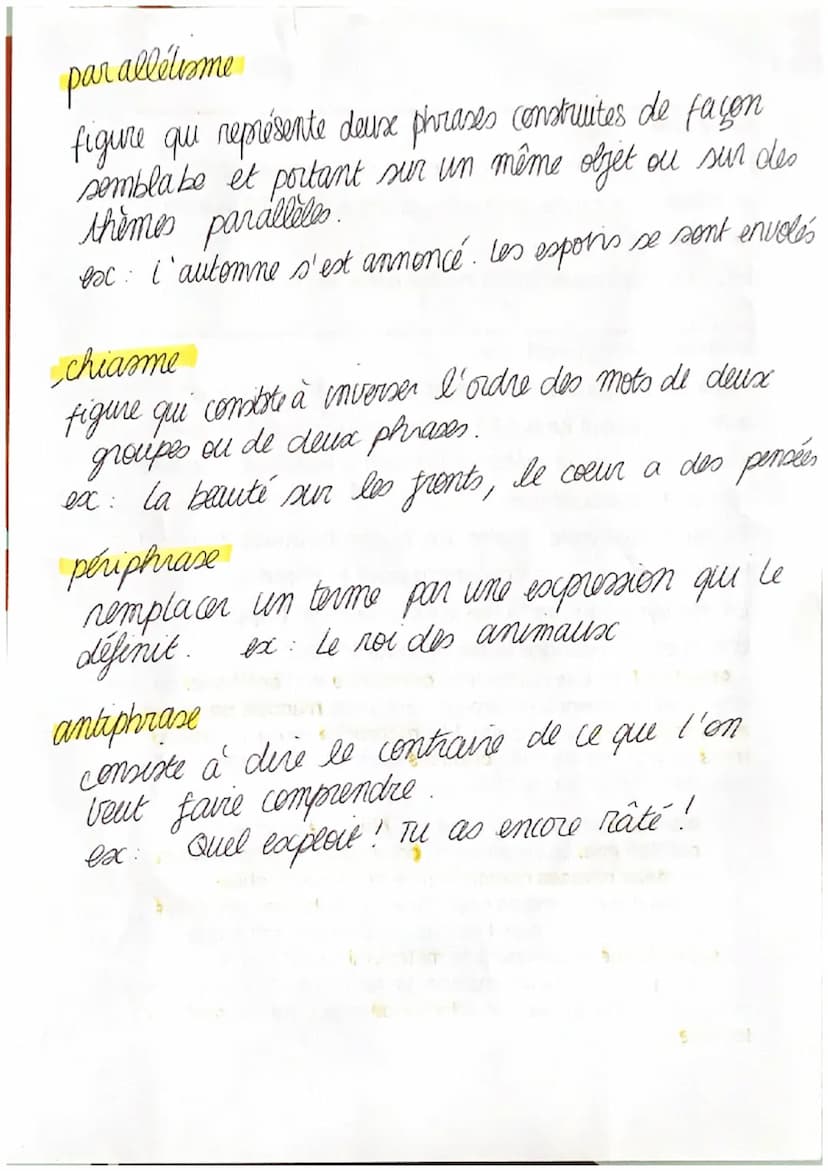 parallélisme
figure qui représente deux phrases construites de façon
semblabe et portant sur un même objet ou sur des
thèmes parallèles.
ex : l'automne s'est annoncé. Les espoirs se sont envolés
chiasme
figure qui consiste à inverser l'ordre des mots de deux
groupes ou de deux phrases.
ex : La beauté sur les fronts, le coeur a des pensées
périphrase
remplacer un terme par une expression qui le
définit. ex : Le roi des animaux
antiphrase
consiste à dire le contraire de ce que l'on
veut faire comprendre.
ex : Quel exploit ! Tu as encore râté !